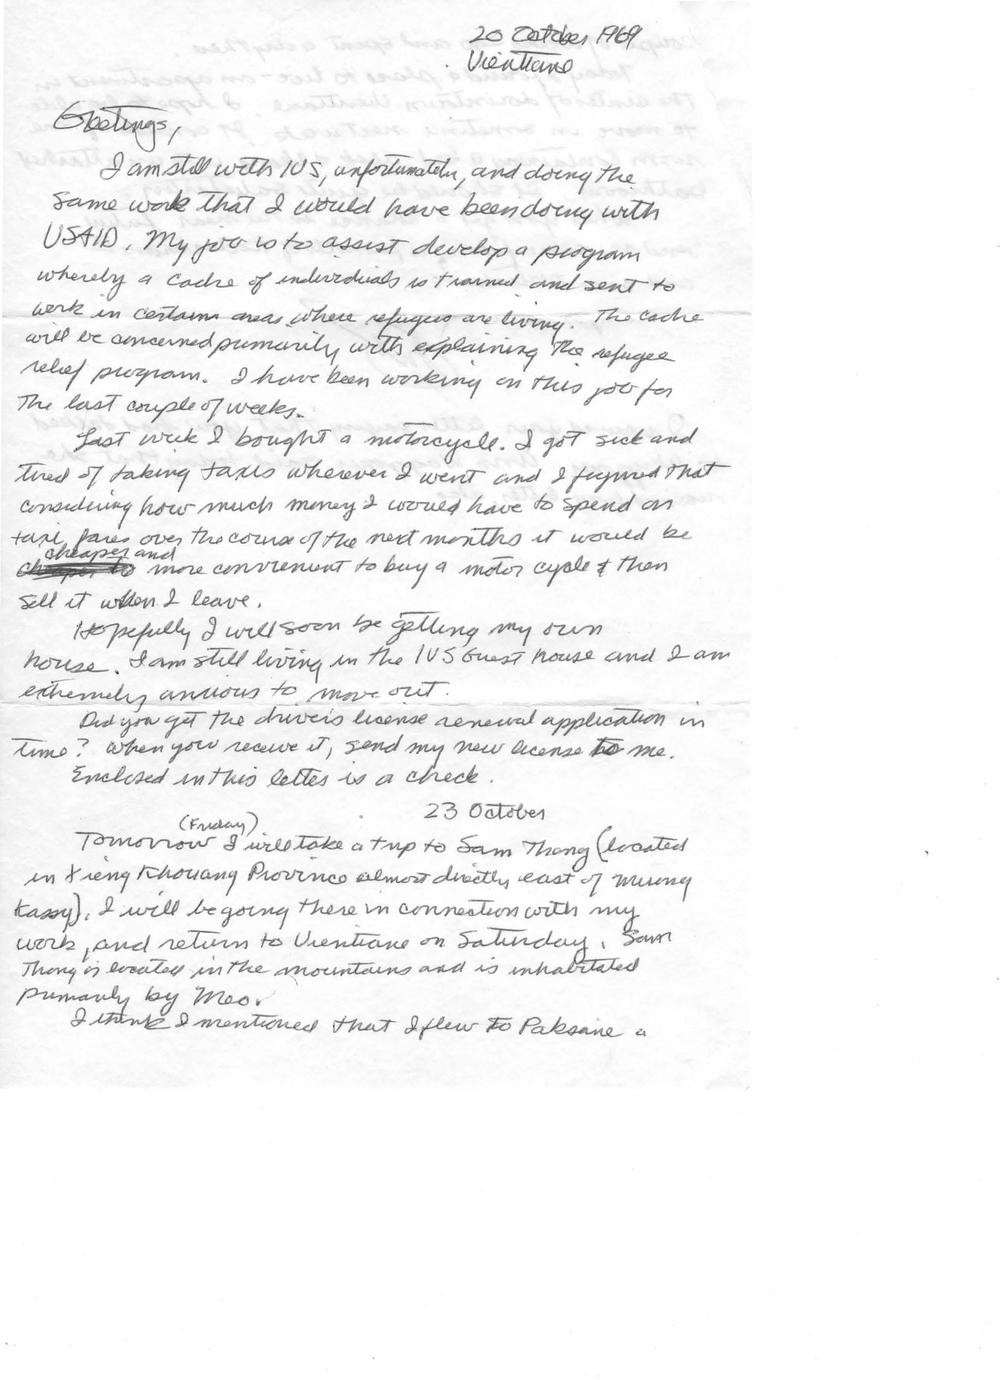 20 October 1969
Vientiane
Greetings,
I am still with IVS, unfortunately, and doing the
same work that I would have been doing with
USAID. My job is to assist develop a program
whereby a cadre of individuals is trained and sent to
work in certain areas where refugees are living. The cadre
will be concerned primarily with explaining the refugee
relief program. I have been working on this job for
the last couple of weeks.
Last week I bought a motorcycle. I got sick and
tired of taking taxis wherever I went and I figured that
considering how much money I would have to spend on
taxi fares over the course of the next months it would be
cheaper and
cheaper to more convenient to buy a motor cycle & then
sell it when I leave.
Hopefully I will soon be getting my own
house. I am still living in the IVS Guest house and I am
extremely anxious to move out.
Did you get the driver's license renewal application in
time? When you receive it, send my new license to me.
Enclosed in this letter is a check.
23 October
(Friday)
Tomorrow I will take a trip to Sam Thong (located
in Xieng Khouang Province almost directly east of Muong
Kassy). I will be going there in connection with my
work, and return to Vientiane on Saturday. Sam
Thong is located in the mountains and is inhabitated
primarily by Meo.
I think I mentioned that I flew to Paksane a